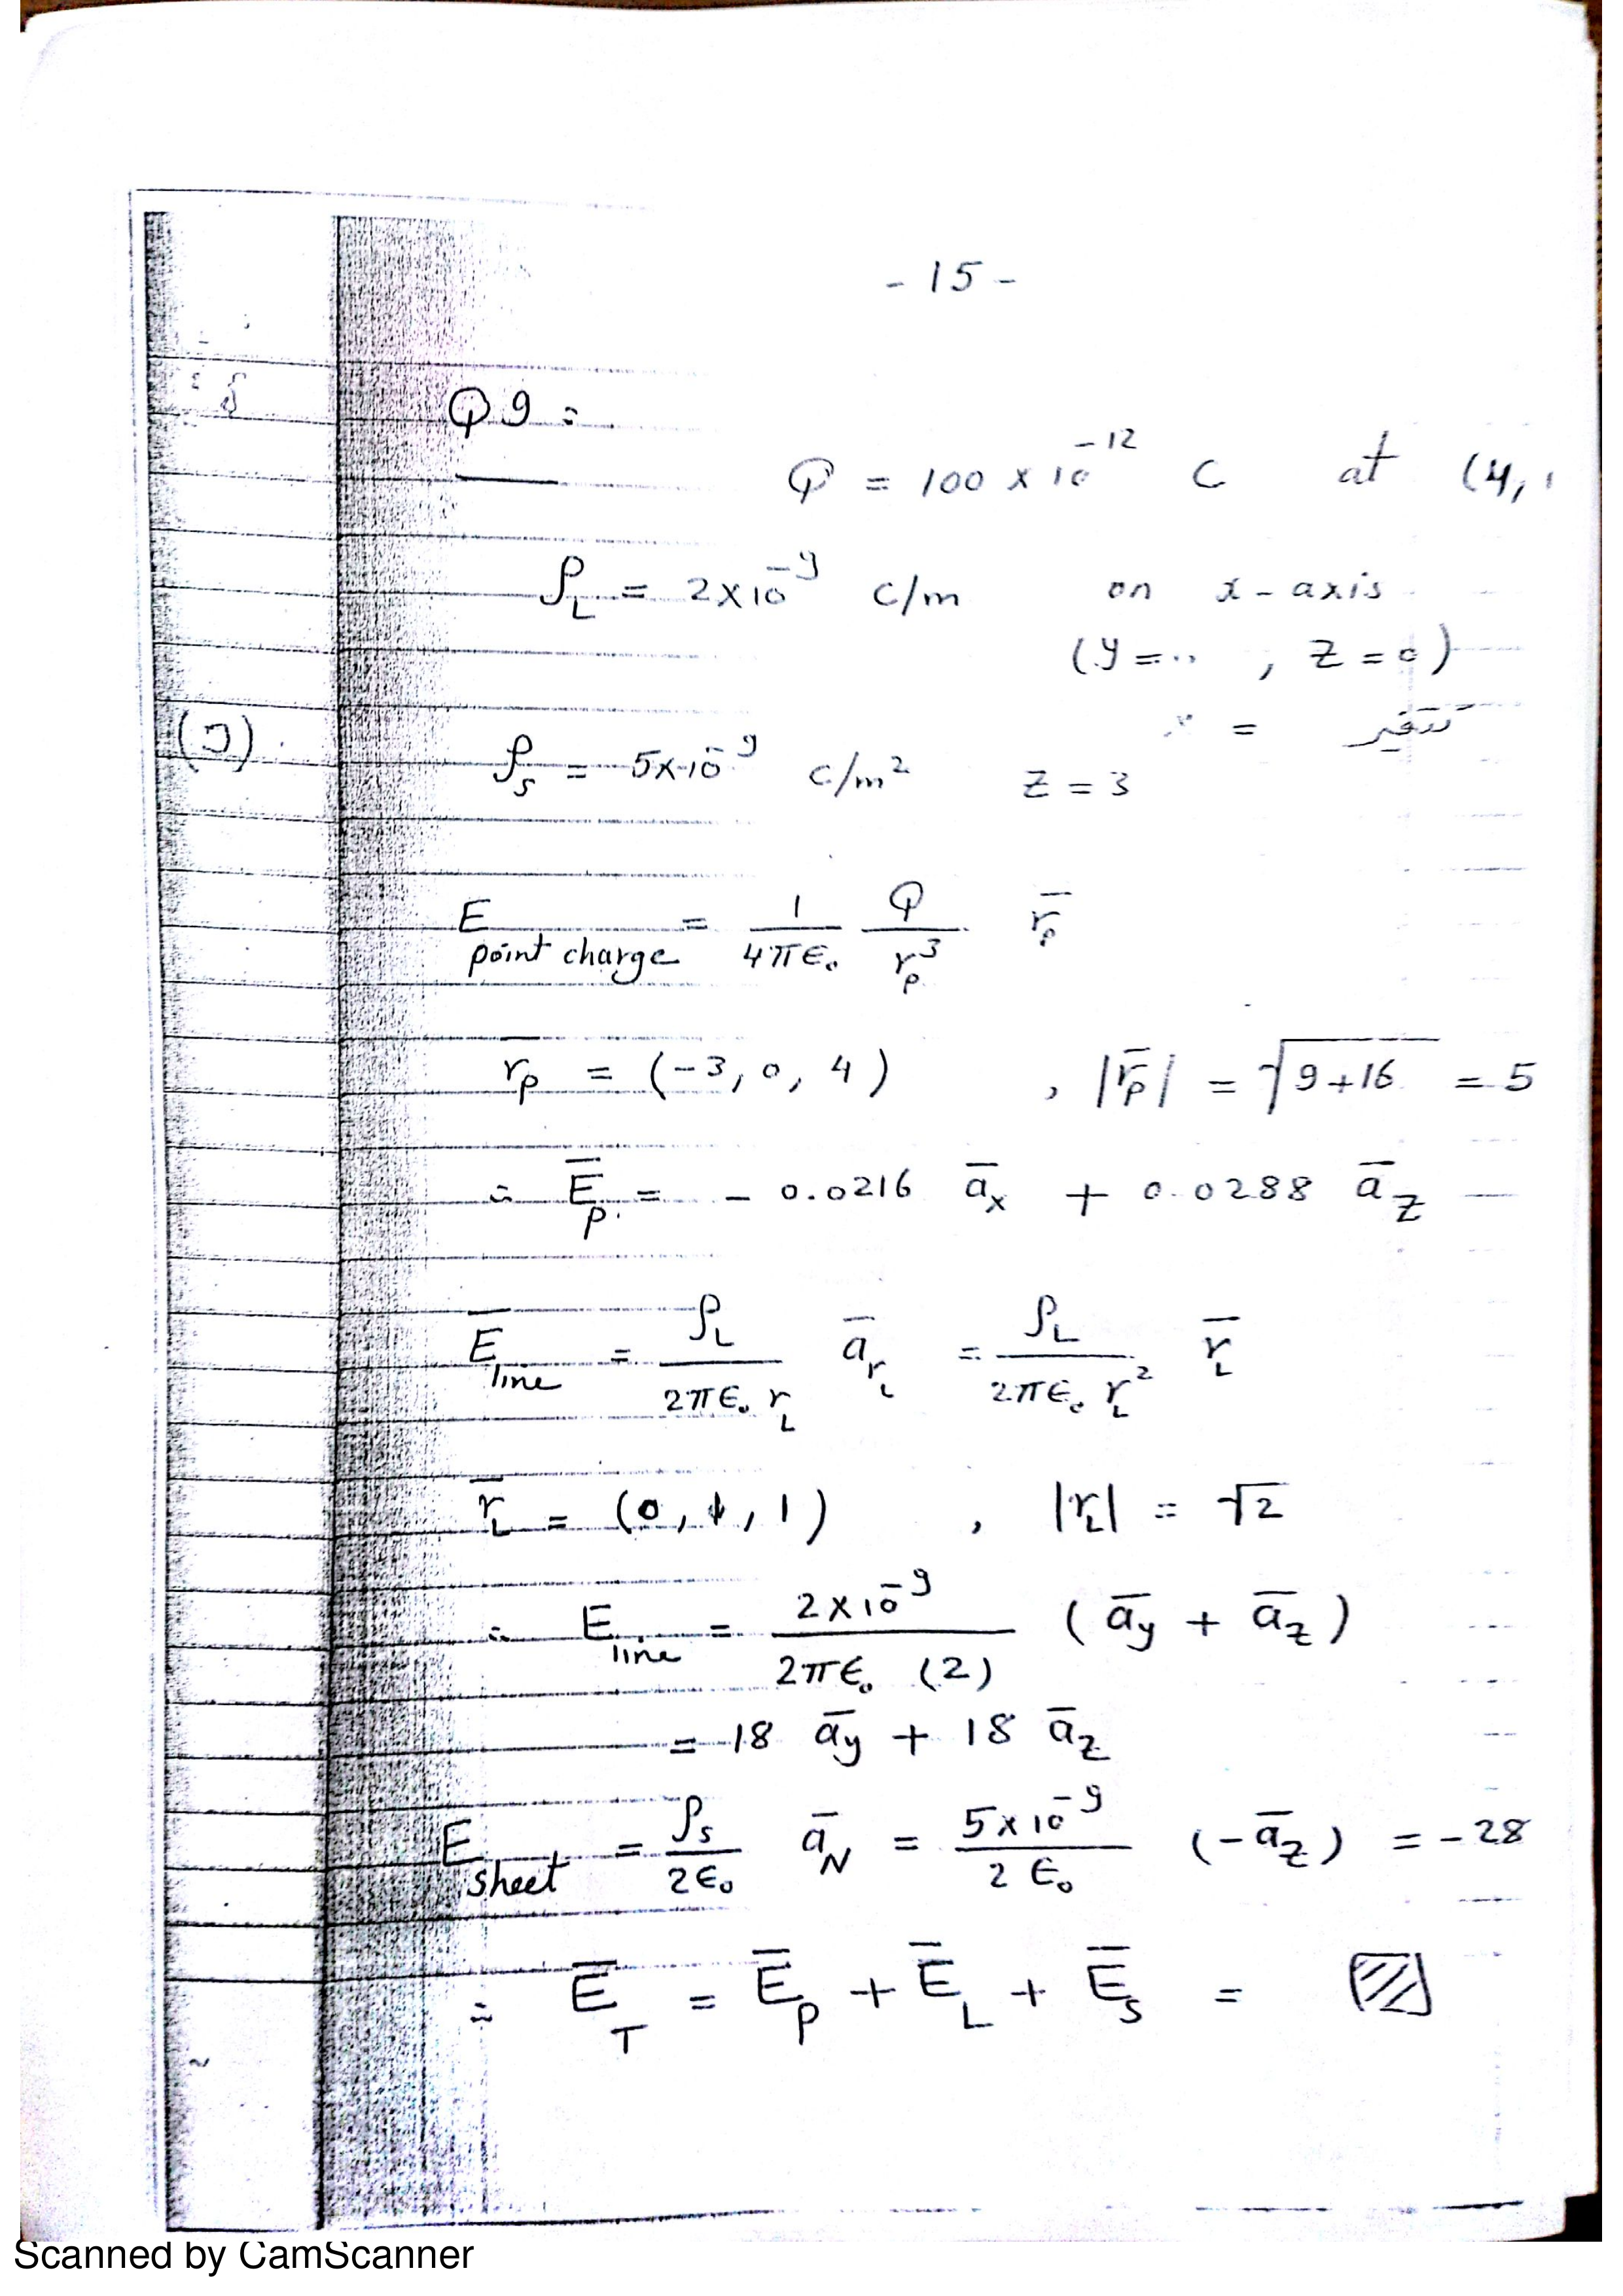 - 15 -
Q9 :
Q = 100 × 10⁻¹² C at (4, 1
ρ_L = 2×10⁻⁹ c/m on x-axis
(y = .. , z = 0)
= تتغير
ρ_s = 5×10⁻⁹ c/m² z = 3
E point charge = 1/4πϵ₀ Q/r_p³ r̄_p
r̄_p = (-3, 0, 4) , |r̄_p| = √9+16 = 5
∴ Ē_p = - 0.0216 ā_x + 0.0288 ā_z
Ē line = ρ_L/2πϵ₀ r_L ā_r_L = ρ_L/2πϵ₀ r_L² r̄_L
r̄_L = (0, 1, 1) , |r_L| = √2
∴ E line = 2×10⁻⁹/2πϵ₀ (2) (ā_y + ā_z)
= 18 ā_y + 18 ā_z
E sheet = ρ_s/2ϵ₀ ā_N = 5×10⁻⁹/2 ϵ₀ (-ā_z) = -28
∴ Ē_T = Ē_p + Ē_L + Ē_s =
Scanned by CamScanner